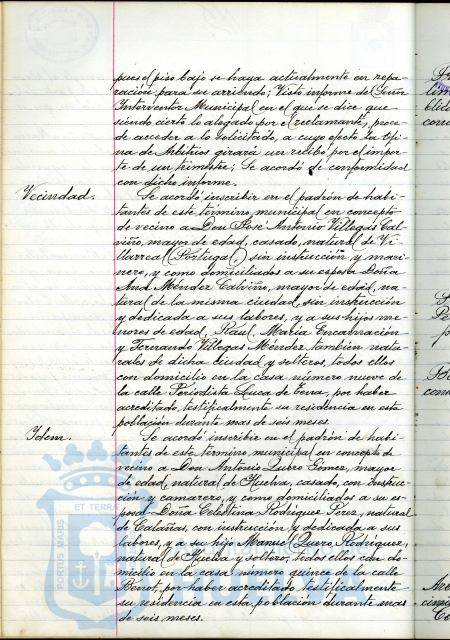 pues el piso bajo se haya actualmente en repa-
ración para su arriendo; Visto informe de Señor
Interventor Municipal en el que se dice que
siendo cierto lo alegado por el reclamante, proce-
de acceder a lo solicitado, a cuyo efecto la Ofici-
na de Arbitrios girará un recibo por el impor-
te de un trimestre; Se acordó de conformidad
con dicho informe.
Vecindad.
Se acordó inscribir en el padrón de habi-
tantes de este término municipal en concepto
de vecino a Don José Antonio Villegas Cal-
viño, mayor de edad, casado, natural de Vi-
llarreal (Portugal) sin instrucción y mari-
nero, y como domiciliados a su esposa Doña
Ana Méndez Calviño, mayor de edad, na-
tural de la misma ciudad, sin instrucción
y dedicada a sus labores, y a sus hijos me-
nores de edad, Raul, María Encarnación
y Fernando Villegas Méndez también natu-
rales de dicha ciudad y solteros, todos ellos
con domicilio en la casa número nueve de
la calle Periodista Luca de Tena, por haber
acreditado testificalmente su residencia en esta
población durante mas de seis meses.
Idem.
Se acordó inscribir en el padrón de habi-
tantes de este término municipal en concepto de
vecino a Don Antonio Quero Gómez, mayor
de edad, natural de Huelva, casado, con instruc-
ción y camarero, y como domiciliados a su es-
posa Doña Celestina Rodríguez Perez, natural
de Calañas, con instrucción y dedicada a sus
labores, y a su hijo Manuel Quero Rodríguez,
natural de Huelva y soltero, todos ellos con do-
micilio en la casa número quince de la calle
Berrot, por haber acreditado testificalmente
su residencia en esta población durante mas
de seis meses.
PORTUS MARIS
ET TERRAE